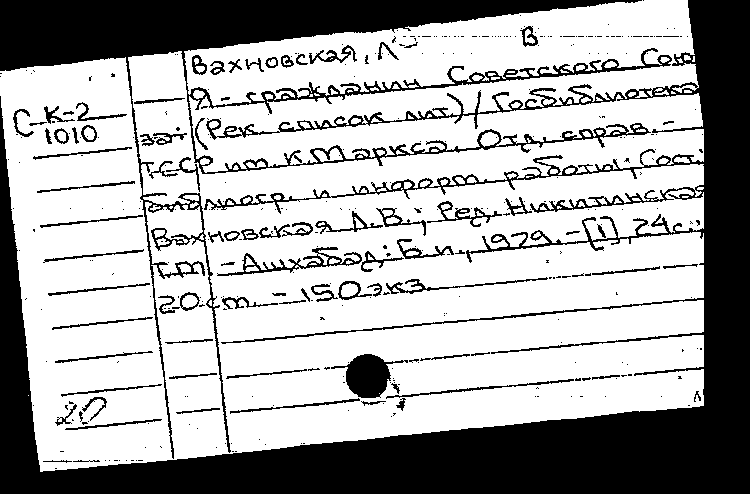 В
Вахновская, Л
Я - гражданин Советского Сою
С К-2
1010
за: (Рек. список лит.) / Госбиблиотека
ТССР им. К. Маркса. Отд. справ.-
библиогр. и информ. работы; Сост.
Вахновская Л.В.; Ред. Никитинская
Г.М. - Ашхабад: Б.и., 1979. - [1], 24с.;
20 см. - 150 экз.
20